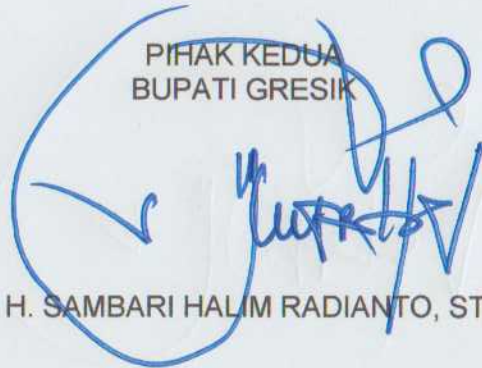 PIHAK KEDUA
BUPATI GRESIK
H. SAMBARI HALIM RADIANTO, ST